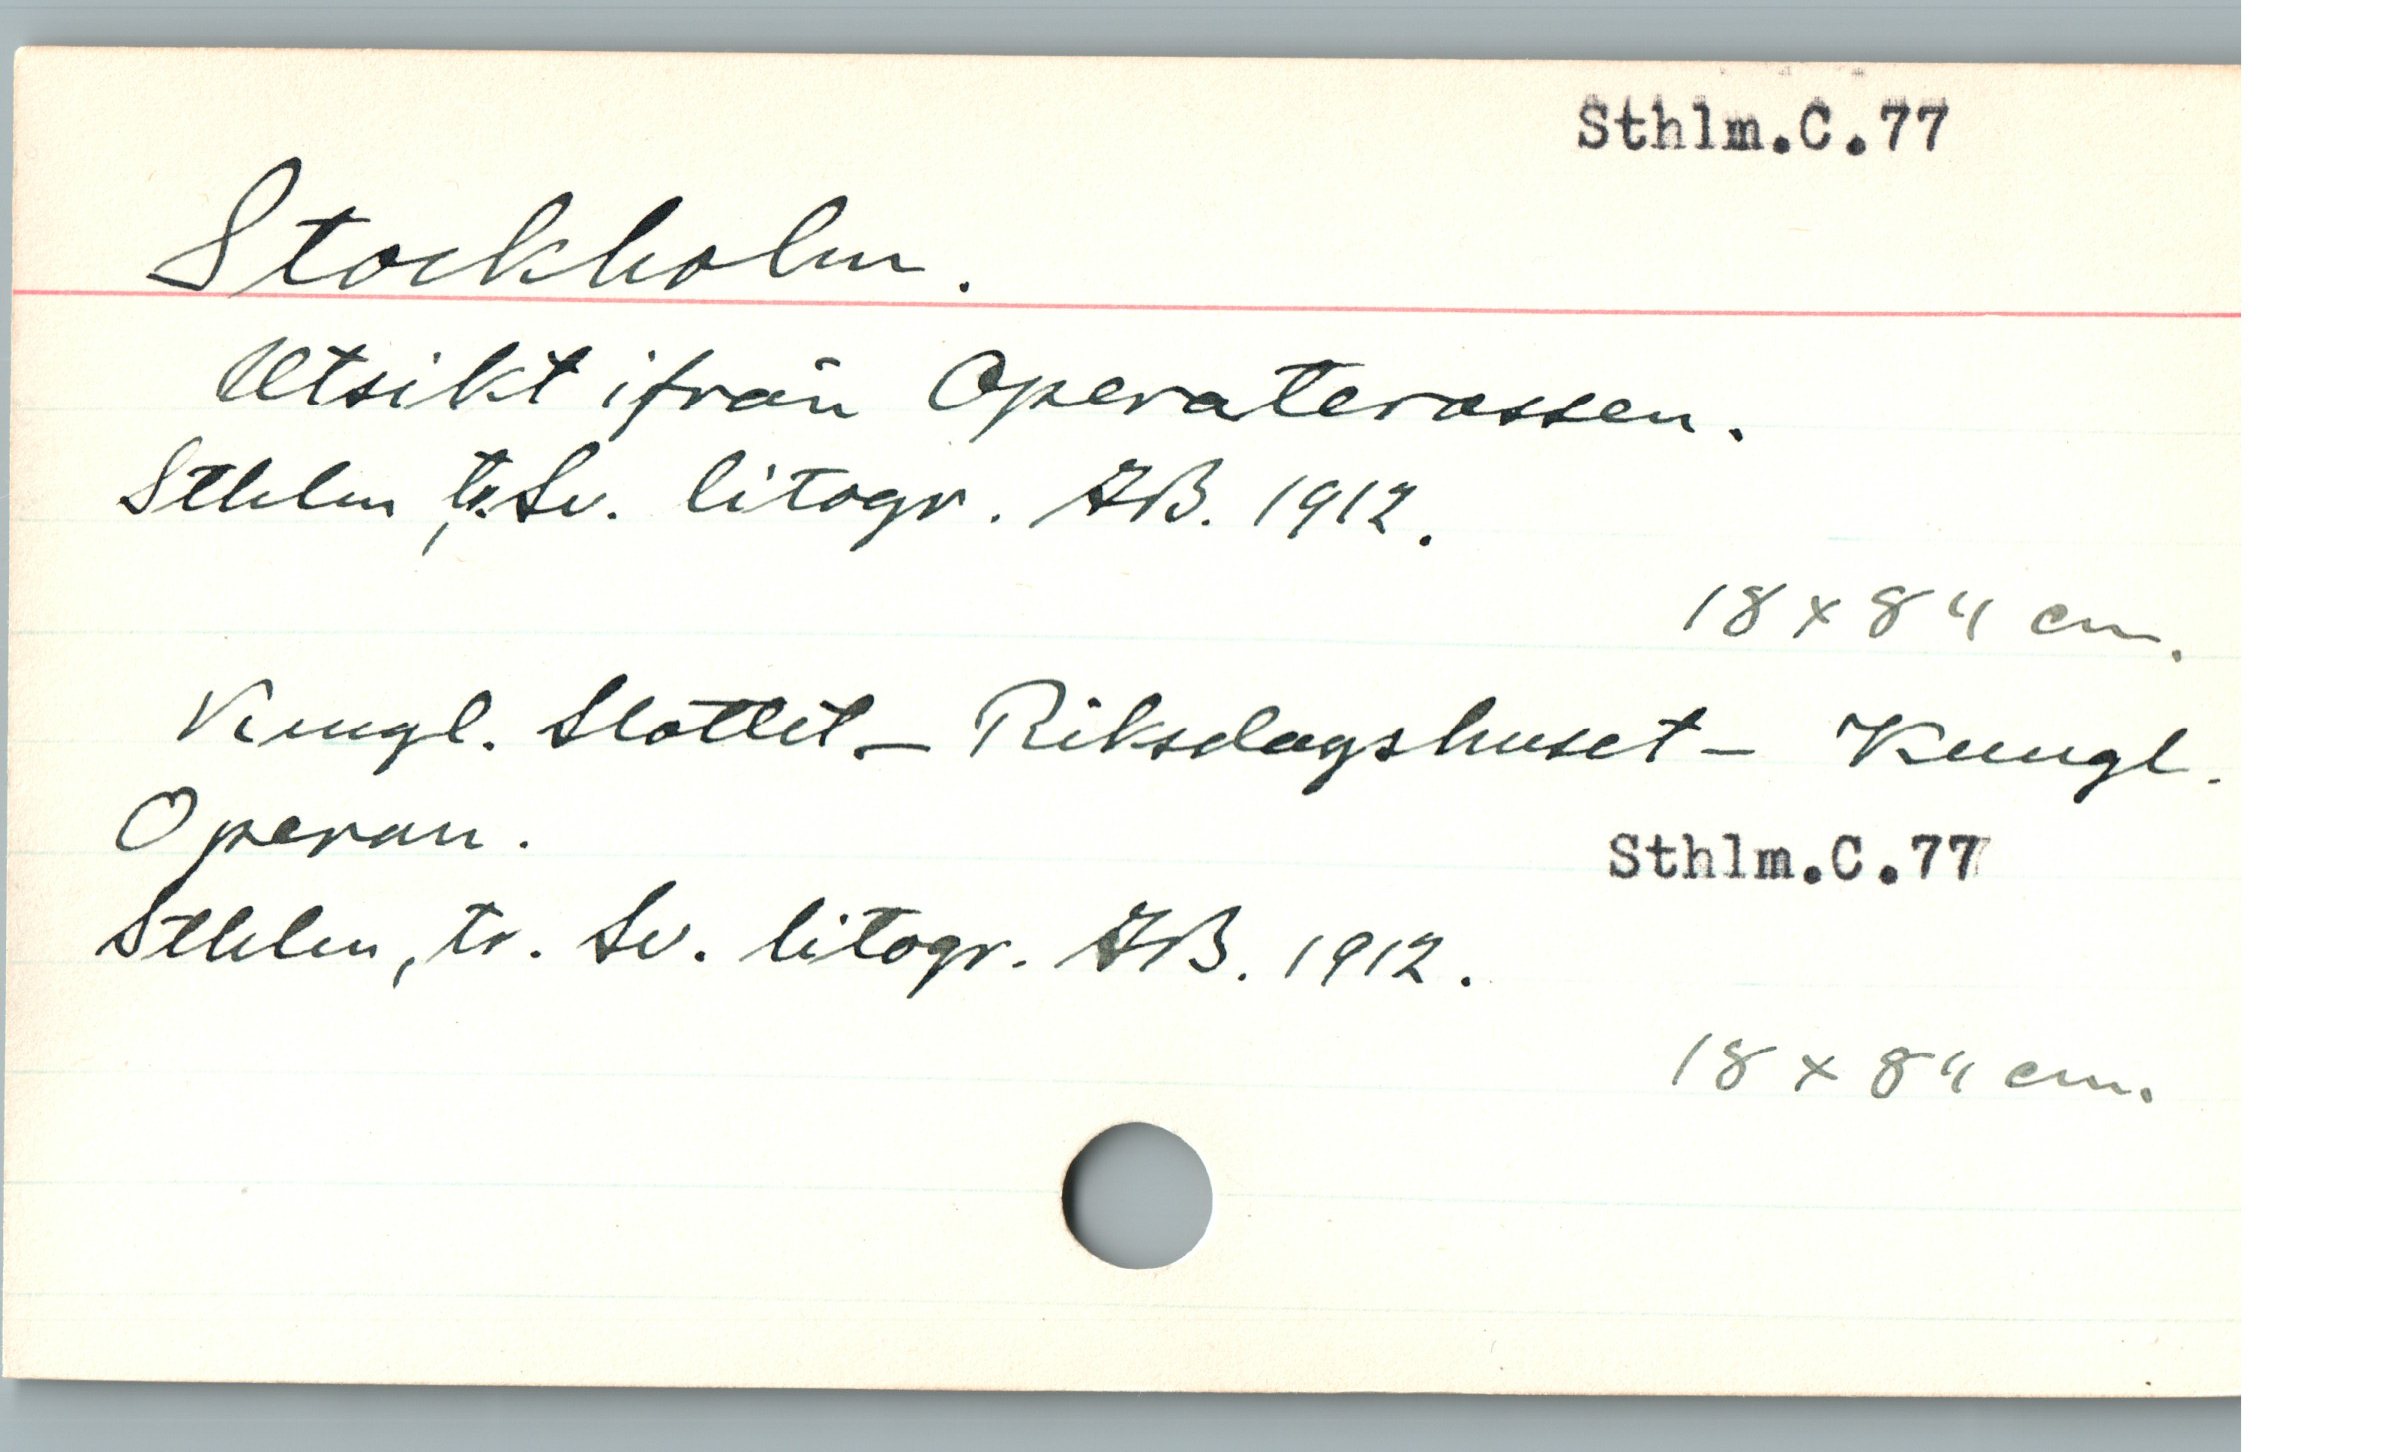 Sthlm.C.77
Stockholm.
Utsikt ifrån Operaterassen.
Sthlm, tr. Sv. litogr. AB. 1912.
18 x 8 cm.
Kungl. Slottet – Riksdagshuset – Kungl.
Operan.
Sthlm.C.77
Sthlm, tr. Sv. litogr. AB. 1912.
18 x 8 cm.